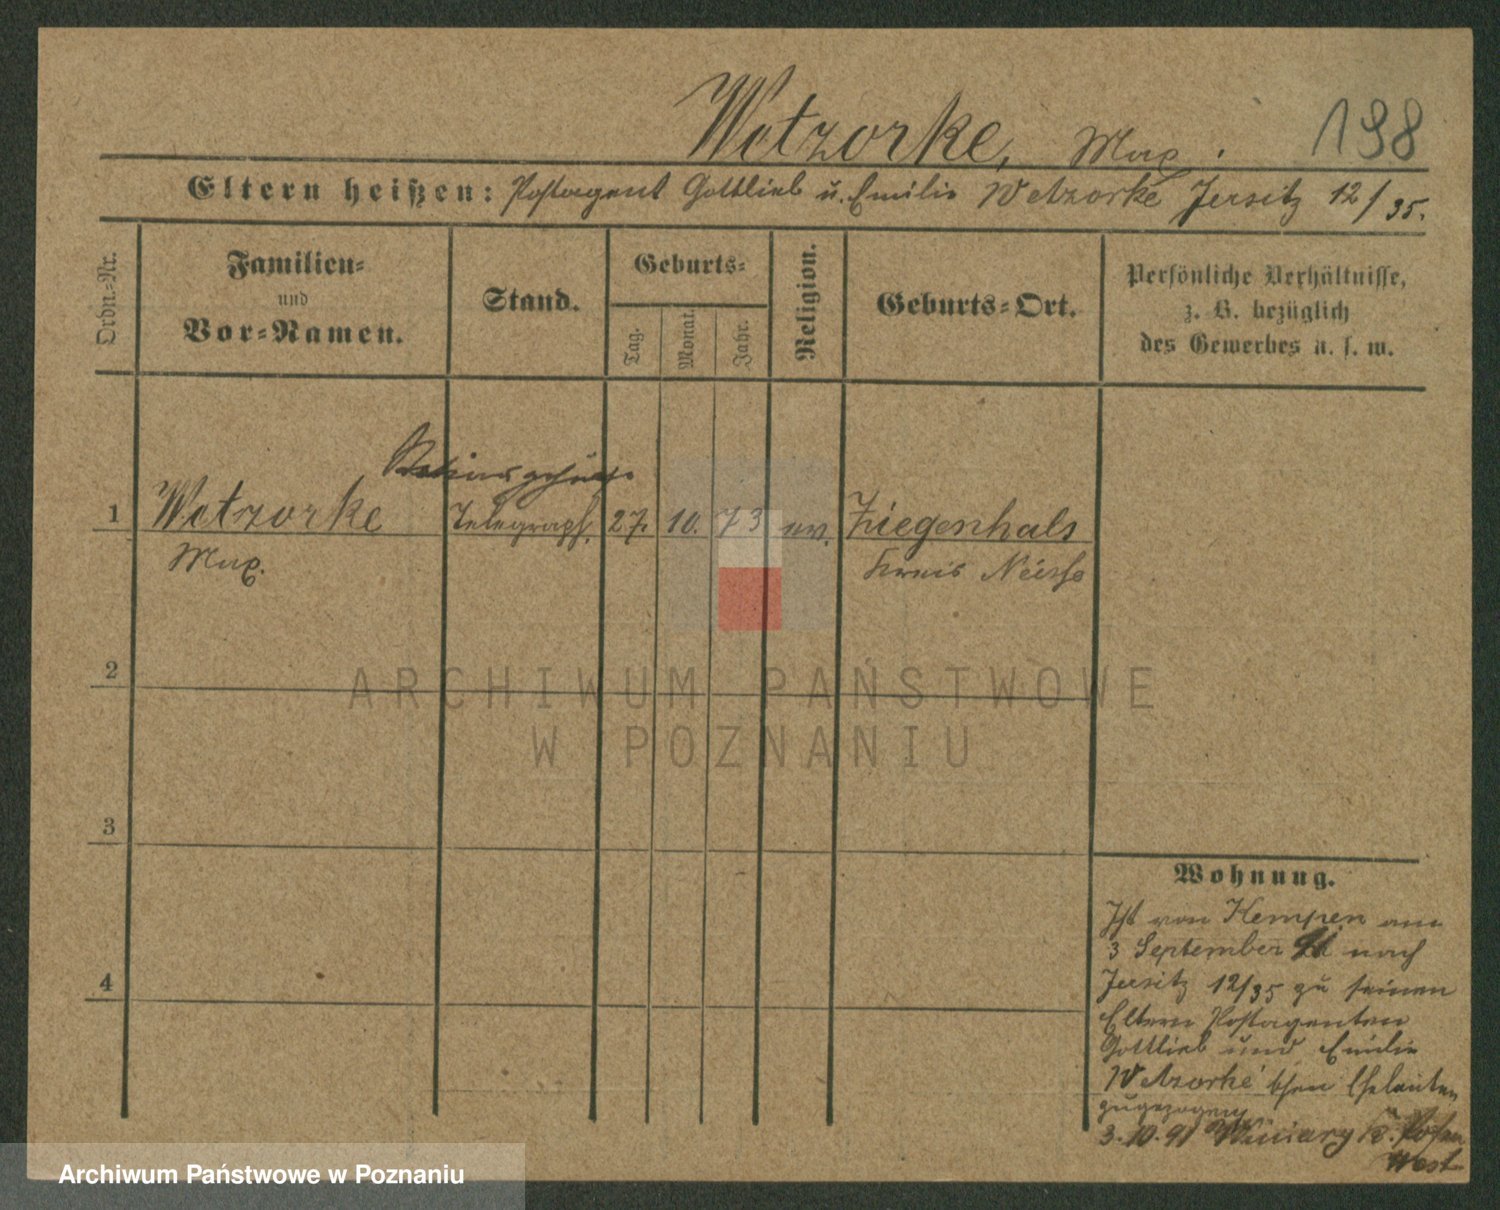 Wetzorke, Max.
198
Eltern heißen: Postagent Gottlieb u. Emilie Wetzorke Jersitz 12/35.
Ordn.-Nr.
Familien-
und
Vor-Namen.
Stand.
Geburts-
Tag.
Monat.
Jahr.
Religion.
Geburts-Ort.
Persönliche Verhältnisse,
z. B. bezüglich
des Gewerbes u. s. w.
1 Wetzorke Telegraph. 27. 10. 73 ev. Ziegenhals
Max. Kreis Neisse
2
ARCHIWUM PAŃSTWOWE
W POZNANIU
3
4
Wohnung.
Ist von Kempen am
3 September 91 nach
Jersitz 12/35 zu seinen
Eltern Postagenten
Gottlieb und Emilie
Wetzorke'schen Eheleuten
zugezogen
3.10.91 Winiary Posen
West
Archiwum Państwowe w Poznaniu